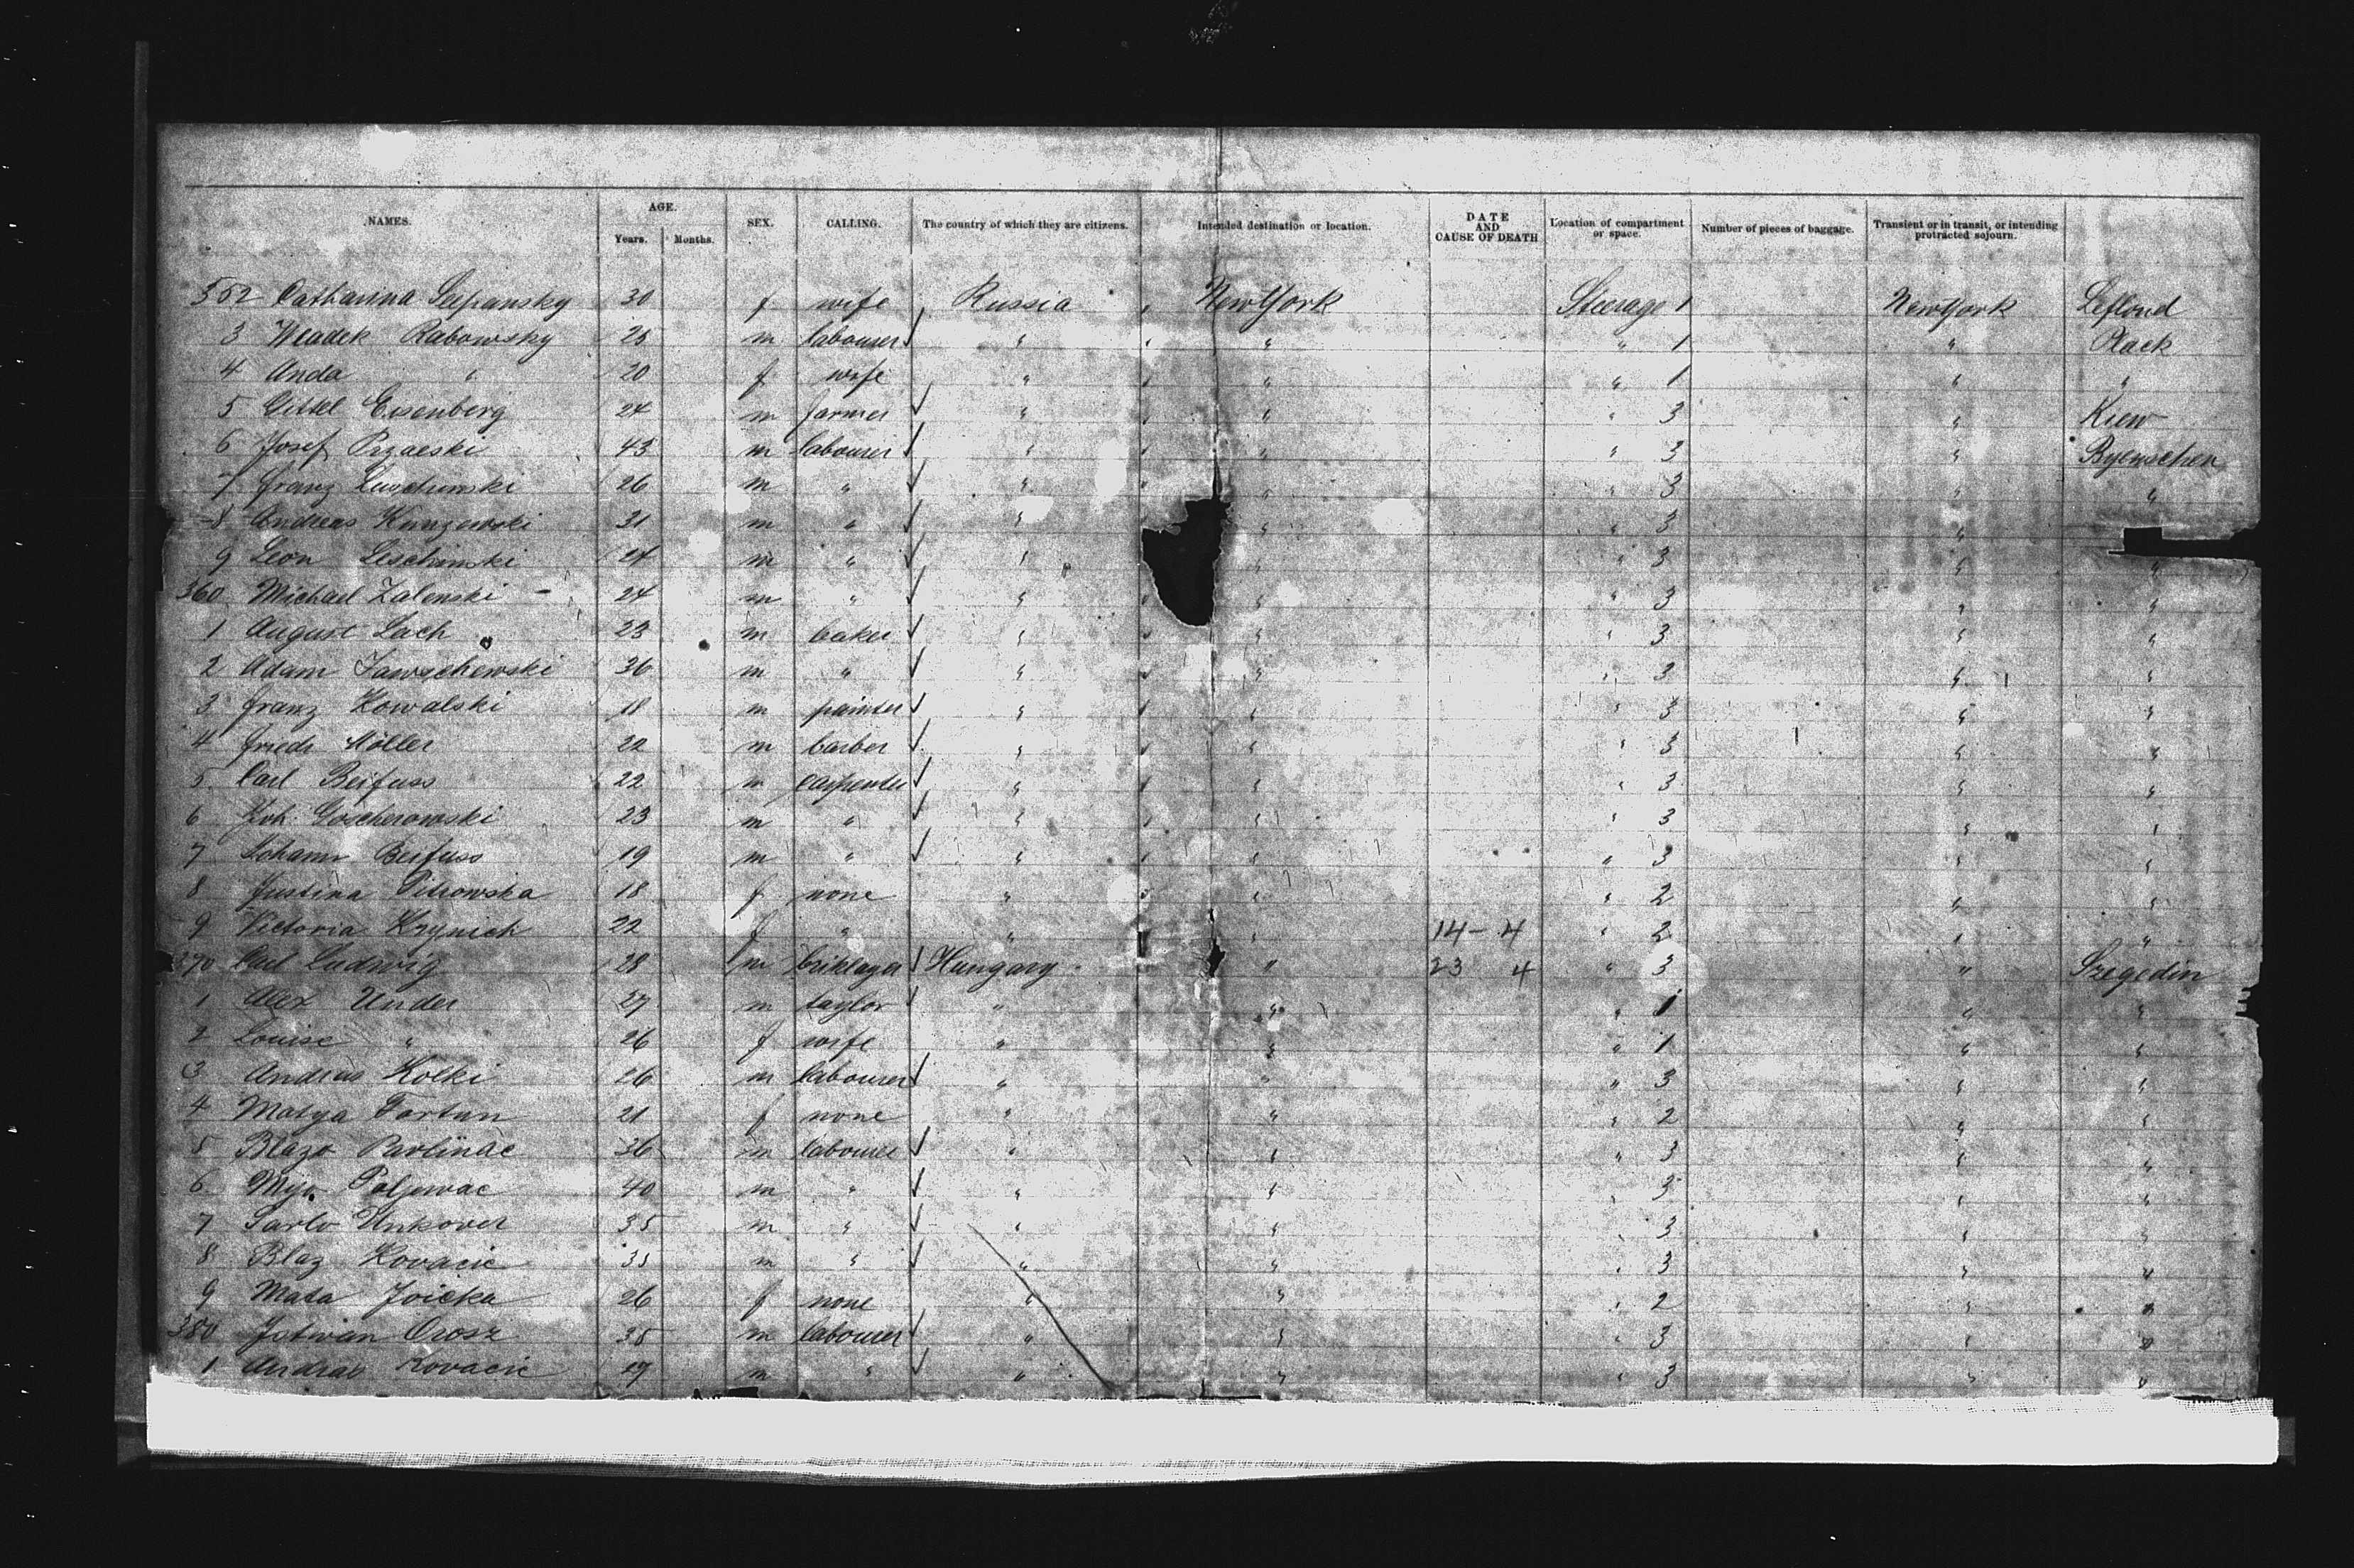 NAMES. AGE. SEX. CALLING. The country of which they are citizens. Intended destination or location. DATE AND CAUSE OF DEATH Location of compartment or space. Number of pieces of baggage. Transient or in transit, or intending protracted sojourn.
Years. Months.
352 Catharina 30 f wife Russia " New York Steerage 1 New York Leflond
3 Wladek Rabowsky 25 m labourer " " " 1 " Plack
4 Anda " 20 f wife " " " 1 " "
5 Gittel Eisenberg 24 m farmer " " " 3 " Kiew
6 Josef 43 m labourer " " " 3 " Byenschen
7 Franz Luschinski 26 m " " " " 3 " "
8 Andreas Kunzewski 31 m " " " " 3 "
9 Leon Leschinski 24 m " " " " 3 " "
360 Michael Zalenski 24 m " " " " 3 " "
1 August Lach 23 m baker " " " 3 " "
2 Adam Jawschewski 36 m " " " " 3 " "
3 Franz Kowalski 18 m painter " " " 3 " "
4 Friedr Möller 22 m barber " " " 3 " "
5 Carl Beifuss 22 m carpenter " " " 3 " "
6 Joh. Goscherowski 23 m " " " " 3 " "
7 Johann Beifuss 19 m " " " " 3 " "
8 Justina Pitrowska 18 f none " " " 2 " "
9 Victoria Krynich 22 f " " " 14 - 4 " 2 " "
370 Carl Ludwig 28 m briklayer Hungary " 23 4 " 3 " Szegedin
1 Alex Under 27 m taylor " " " 1 " "
2 Louise " 26 f wife " " " 1 " "
3 Andras Kolki 26 m labourer " " " 3 " "
4 Matya Fortun 21 f none " " " 2 " "
5 Blazo Pavlinac 36 m labourer " " " 3 " "
6 Mijo Poljewac 40 m " " " " 3 " "
7 35 m " " " " 3 " "
8 Blaz Kovacic 35 m " " " " 3 " "
9 Mata Joicka 26 f none " " " 2 " "
380 Istwan Orosz 35 m labourer " " " 3 " "
1 Andras Kovacic m " " " " 3 " "